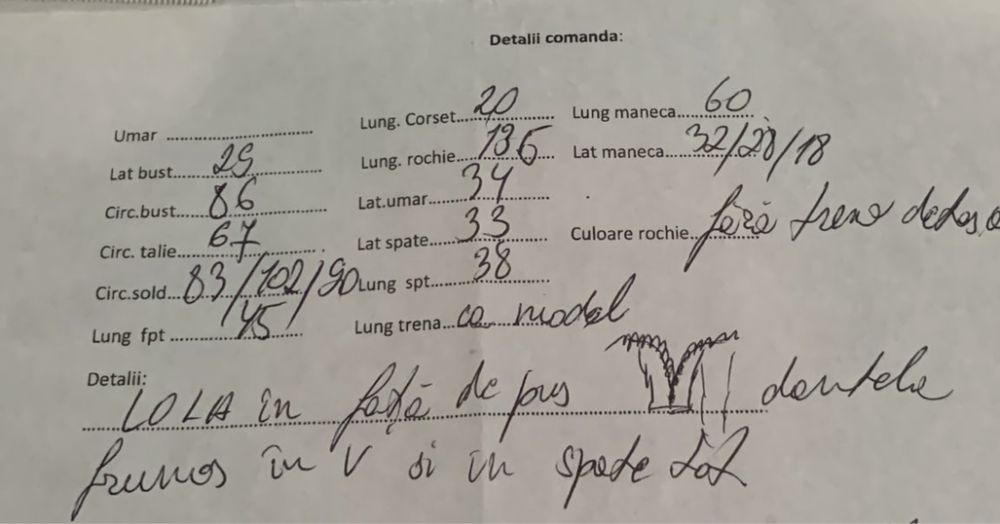 Detalii comanda:
Umar
Lung. Corset 20
Lung maneca 60
Lat bust 25
Lung. rochie 136
Lat maneca 32/28/18
Circ.bust 86
Lat.umar 34
Circ. talie 67
Lat spate 33
Culoare rochie fără trena dedos
Circ.sold 83/102/90
Lung spt 38
Lung fpt 45
Lung trena ca model
Detalii:
LOLA în față de pus dantela
frumos în V și în spate tot